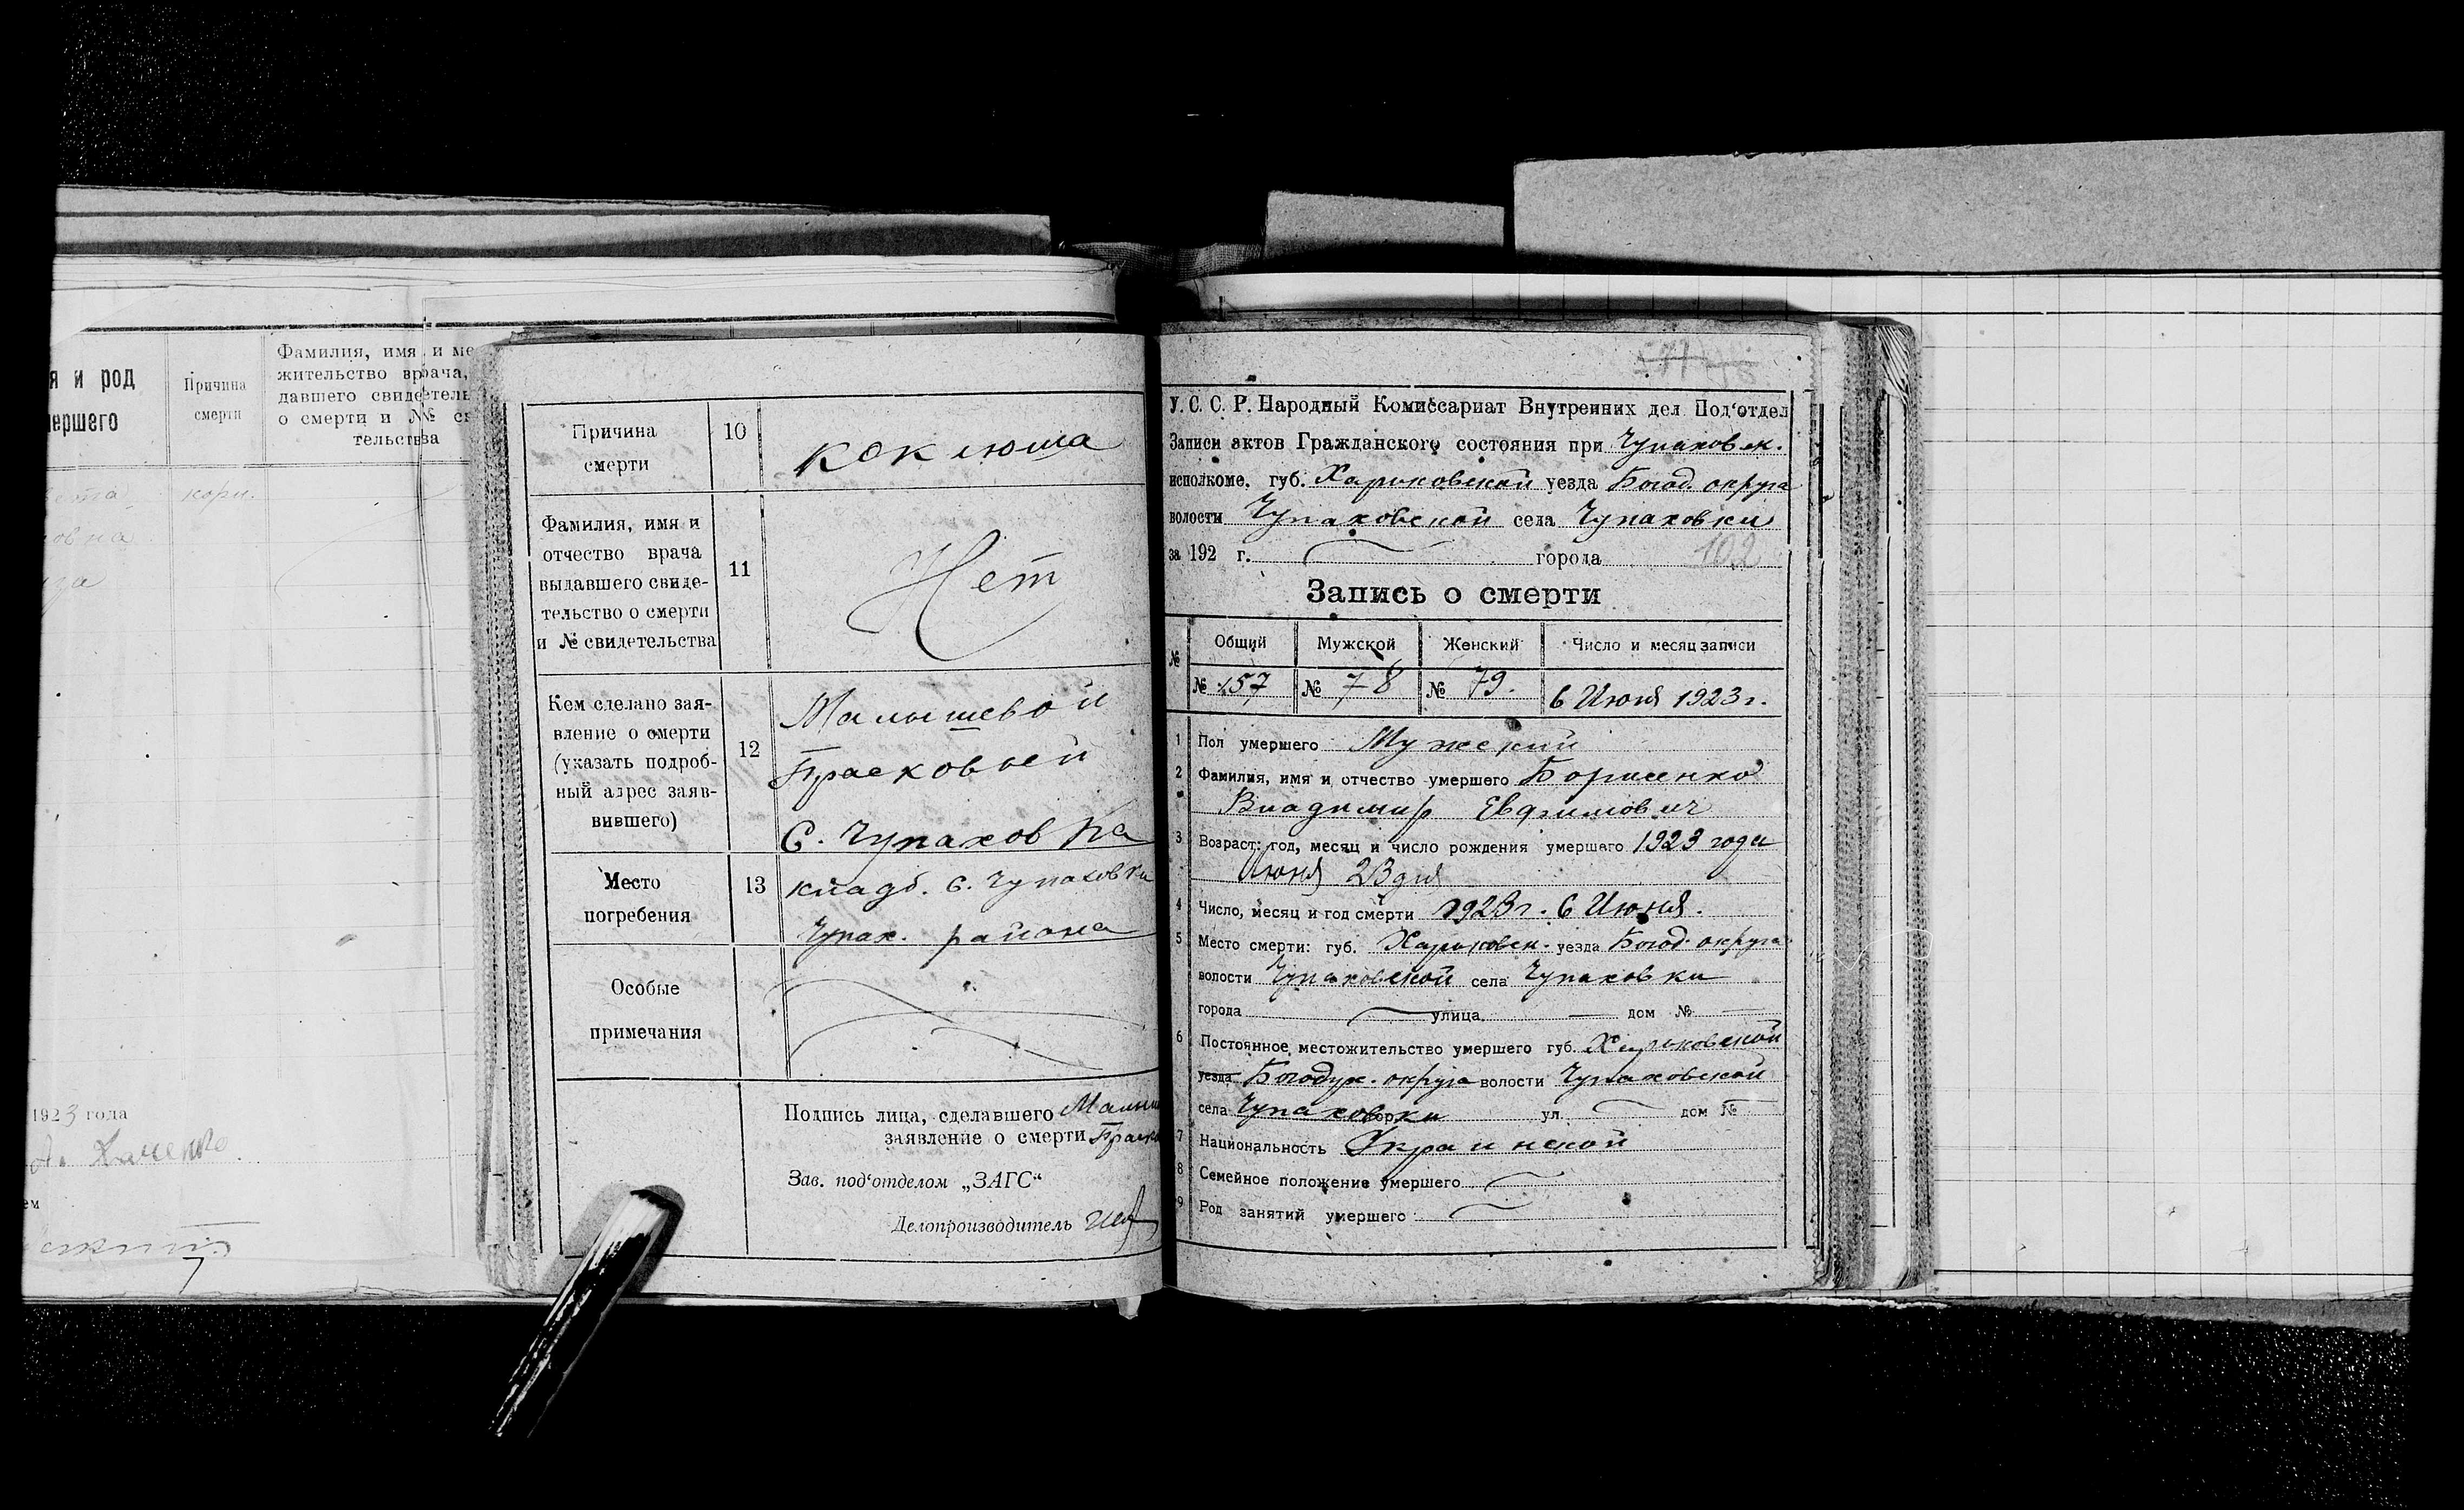 я и род
мершего
Причина
смерти
Фамилия, имя и ме
жительство врача,
давшего свидетель
о смерти и № св
тельства
овна
1923 года
ем
Причина
смерти
10
коклюша
Фамилия, имя и
отчество врача
выдавшего свиде-
тельство о смерти
и № свидетельства
11
Нет
Кем сделано зая-
вление о смерти
(указать подроб-
ный адрес заяв-
вившего)
12
Малышевой
Прасковьей
С. Чупаховка
Место
погребения
13
кладб. с. Чупаховки
Чупах. района
Особые
примечания
Подпись лица, сделавшего Малыш
заявление о смерти Праск
Зав. под‘отделом „ЗАГС“
Делопроизводитель
У. С. С. Р. Народный Комиссариат Внутренних дел Под‘отдел
Записи актов Гражданского состояния при Чупаховск.
исполкоме, губ. Харьковской уезда Богод. округа
волости Чупаховской села Чупаховки
за 192 г. города 102
Запись о смерти
№ Общий Мужской Женский Число и месяц записи
№ 157 № 78 № 79. 6 Июня 1923 г.
1 Пол умершего Мужский
2 Фамилия, имя и отчество умершего Борисенко
Владимир Евфимович
3 Возраст: год, месяц и число рождения умершаго 1923 года
Июня 23 дня
4 Число, месяц и год смерти 1923 г. 6 Июня.
5 Место смерти: губ. Харьковск. уезда Богод. округа
волости Чупаховской села Чупаховки
города улица дом №
6 Постоянное местожительство умершего губ. Харьковской
уезда Богодух. округа волости Чупаховской
села Чупаховки гор. ул. дом №
7 Национальность Украинской
8 Семейное положение умершего
9 Род занятий умершего